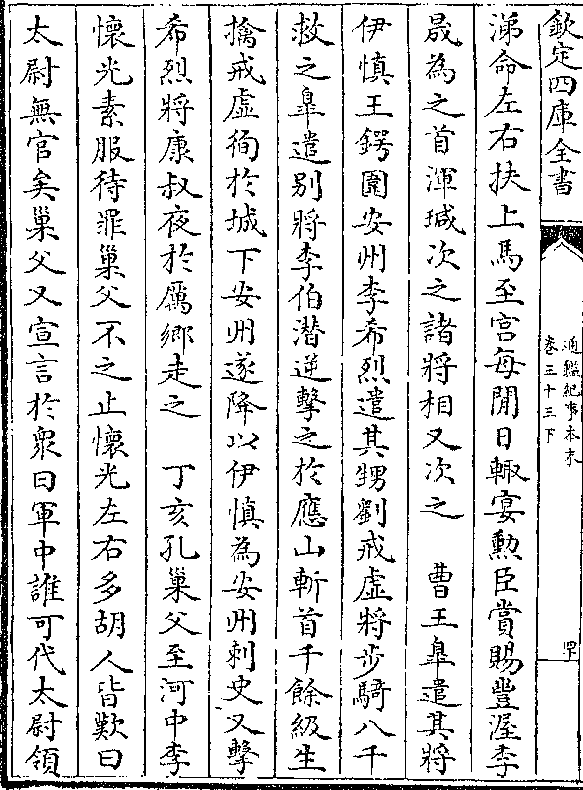 欽定四庫全書
通鑑紀事本末
卷三十三下
涕命左右扶上馬至宫每閒日輙宴勲臣賞賜豐渥李
晟為之首渾瑊次之諸將相又次之　曹王臯遣其將
伊慎王鍔圍安州李希烈遣其甥劉戒虚將步騎八千
救之臯遣别將李伯潜逆擊之於應山斬首千餘級生
擒戒虚徇於城下安州遂降以伊慎為安州刺史又擊
希烈將康叔夜於厲鄉走之　丁亥孔巢父至河中李
懷光素服待罪巢父不之止懷光左右多胡人皆歎曰
太尉無官矣巢父又宣言於衆曰軍中誰可代太尉領